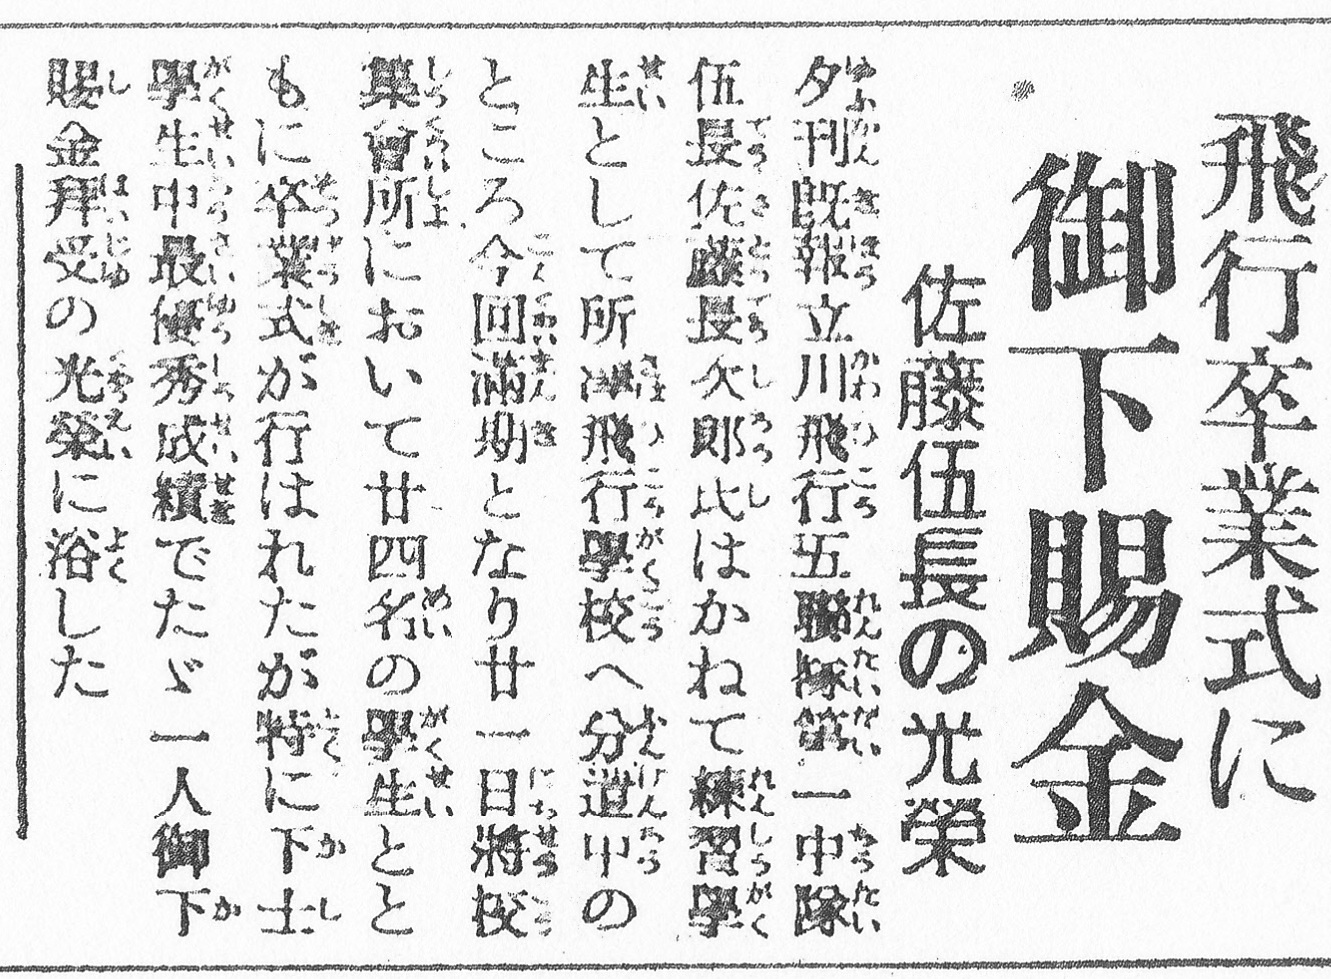 飛行卒業式に
御下賜金
佐藤伍長の光榮
夕刊既報立川飛行五聯隊第一中隊
伍長佐藤長次郎氏はかねて練習學
生として所澤飛行學校へ分遣中の
ところ今回滿期となり廿一日將校
集會所において廿四名の學生とと
もに卒業式が行はれたが特に下士
學生中最優秀成績でたゞ一人御下
賜金拜受の光榮に浴した